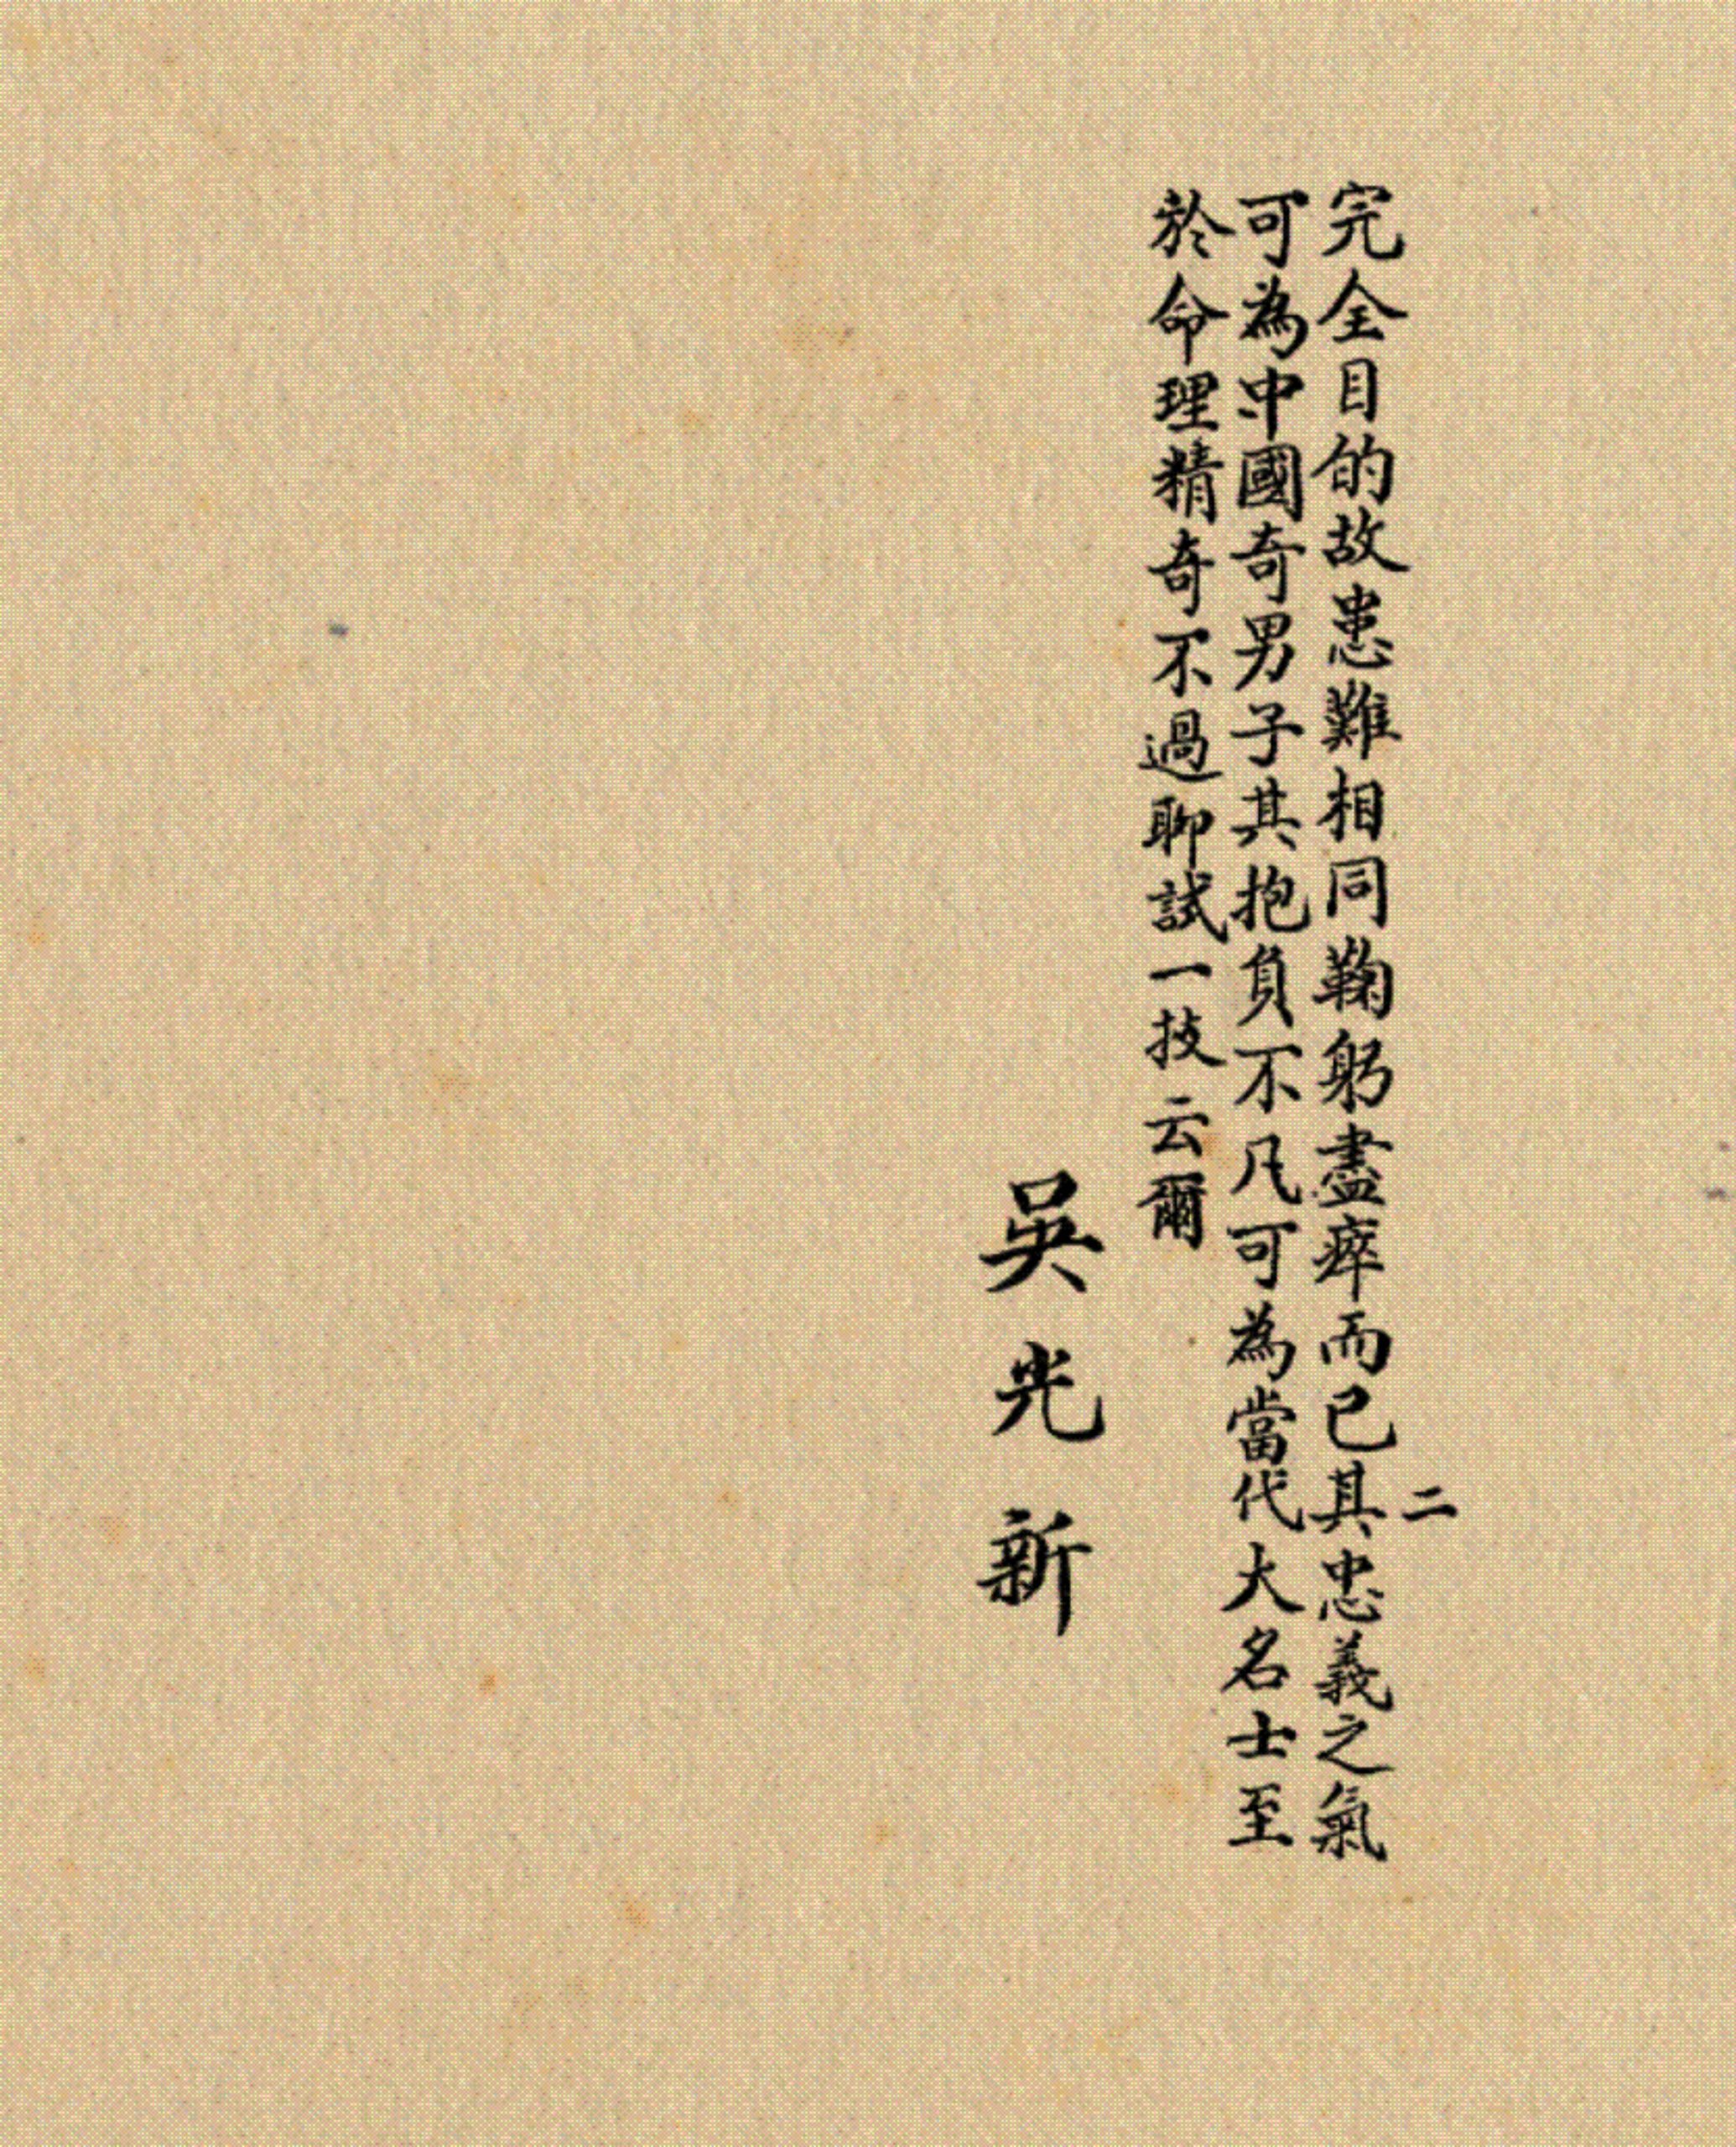 二
完全目的故患難相同鞠躬盡瘁而已其忠義之氣
可為中國奇男子其抱負不凡可為當代大名士至
於命理精奇不過聊試一技云爾
吳光新